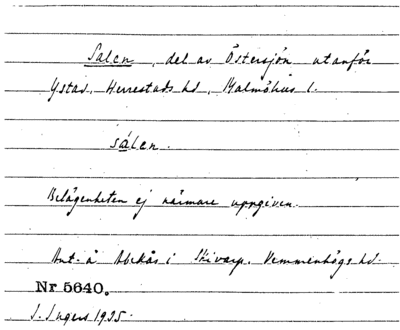 Salen, del av Östersjön utanför
Ystad, Herrestads hd, Malmöhus l.
sálen.
Belägenheten ej närmare uppgiven.
Ant. å Abekås i Skivarp, Vemmenhögs hd.
Nr 5640.
I. Ingers 1925.